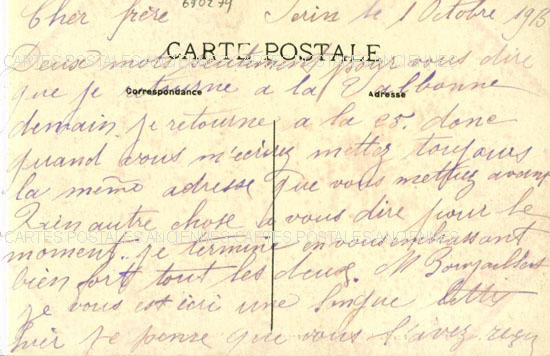 690274
Cher frère Serin le 1 Octobre 1913
CARTE POSTALE
Deux mots seulement pour vous dire
que je retourne a la Valbonne
Correspondance Adresse
demain. je retourne a la 25. donc
quand vous m'écrirez mettez toujours
la même adresse que vous mettiez avant
Rien autre chose a vous dire pour le
CARTES POSTALES ANCIENNES
moment. je termine en vous embrassant
bien fort tout les deux. M
je vous est écri une longue lettre
hier je pense que vous l'avez reçu